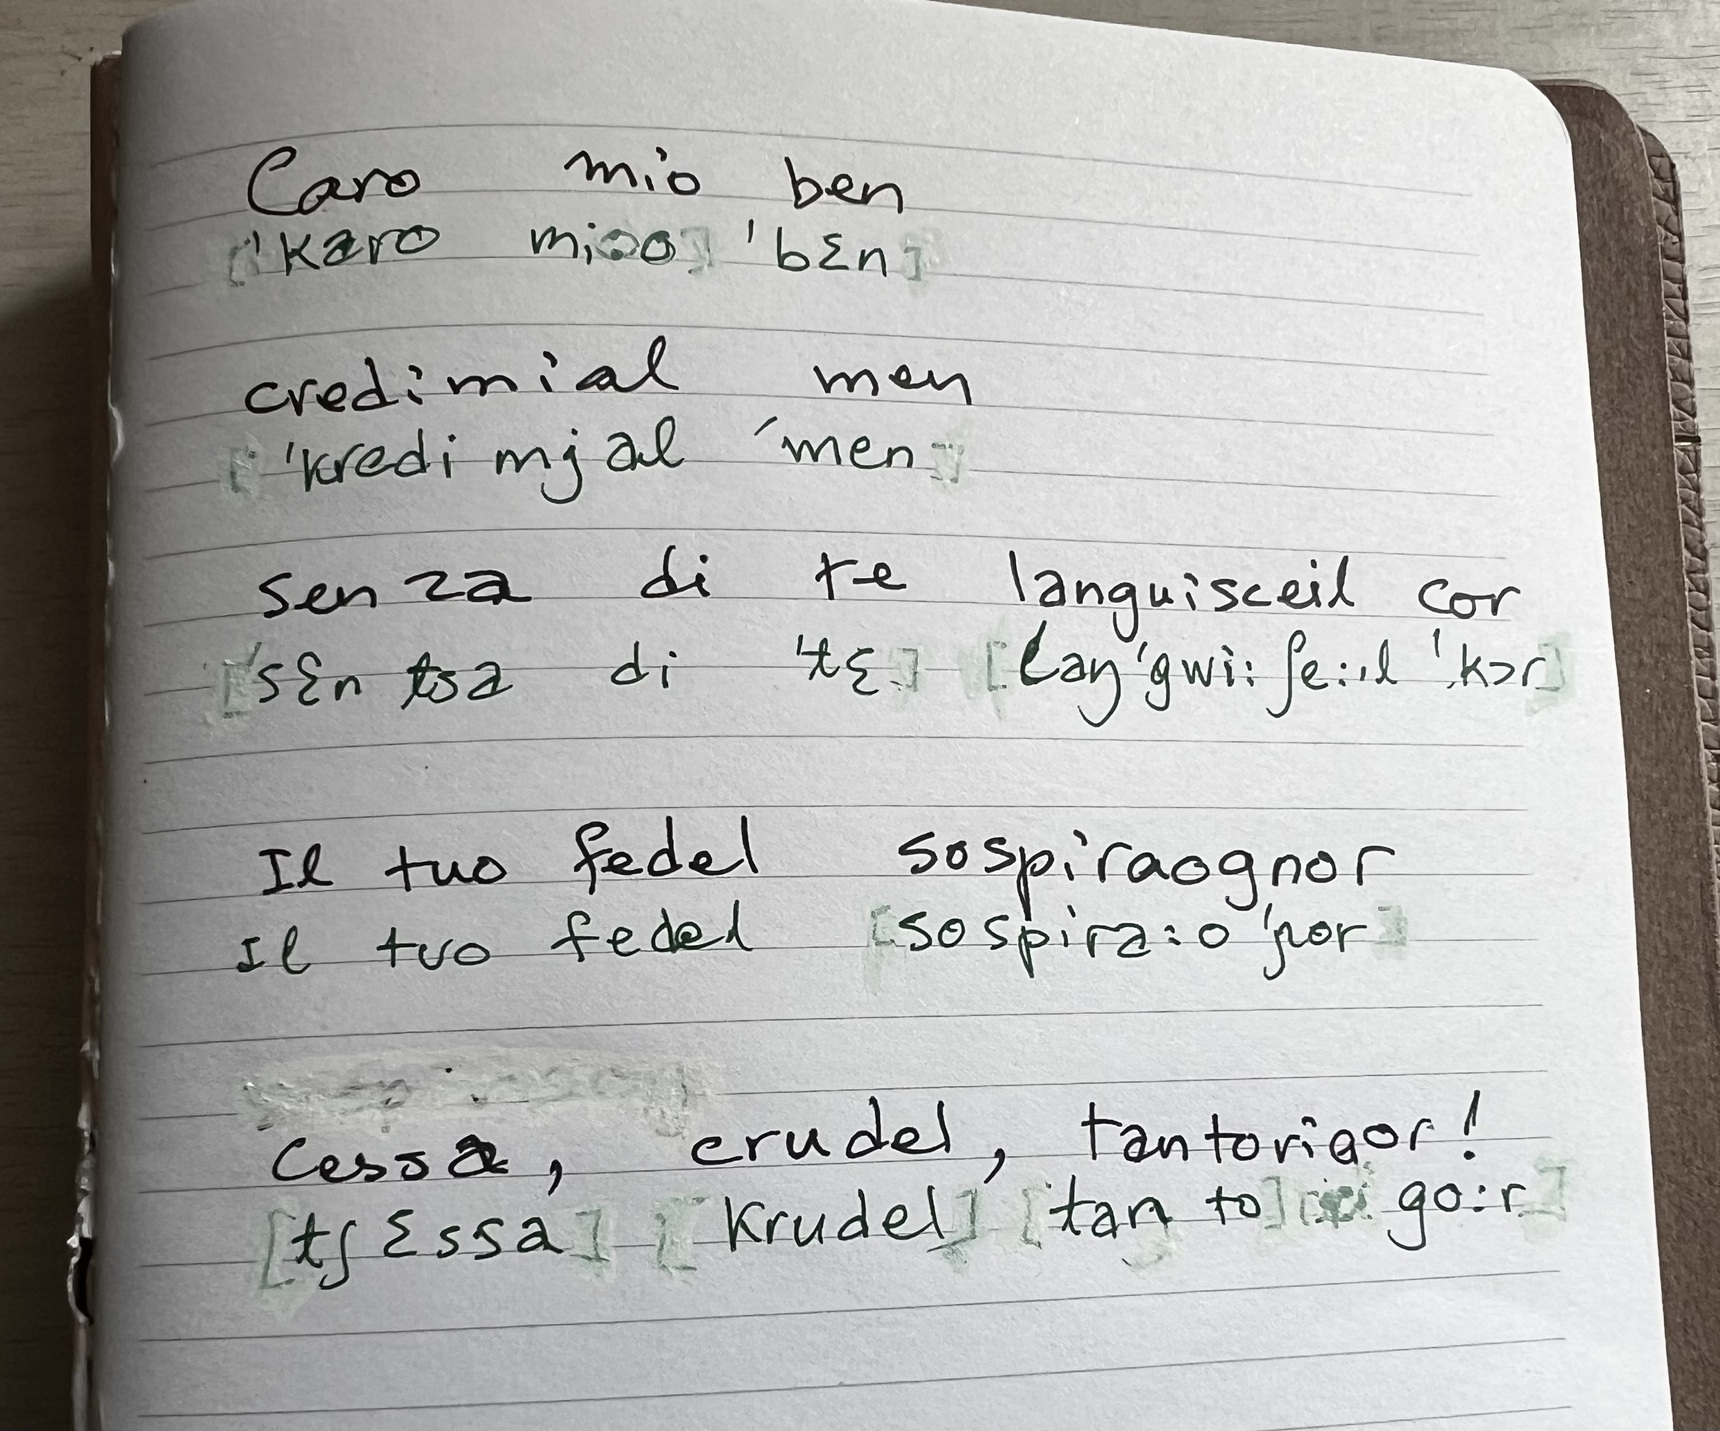 Caro mio ben
['karo mioo] 'bɛn]
credimial men
['kredi mjal 'men]
senza di te languisceil cor
['sɛn tsa di 'tɛ] [laŋ'gwi:ʃe:il 'kɔr]
Il tuo fedel sospiraognor
Il tuo fedel [sospira:o'ɲor]
Cessa, crudel, tantorigor!
[tʃɛssa] [krudel] [tan to] go:r]